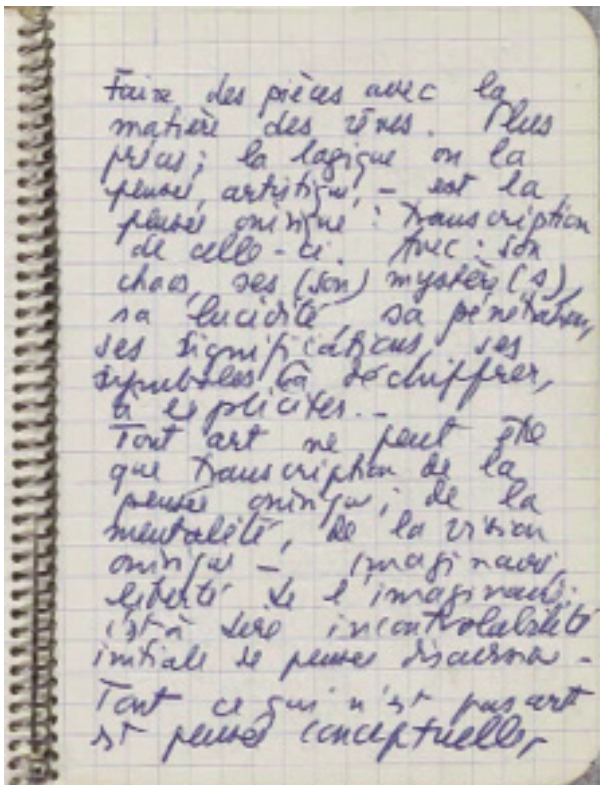 Faire des pièces avec la
matière des rêves. Plus
précis; la logique ou la
pensée, artistique, – est la
pensée onirique : Transcription
de celle-ci. Avec : son
chaos, ses (son) mystère(s),
sa lucidité, sa pénétration,
ses significations, ses
symboles (à déchiffrer,
à expliciter.–
Tout art ne peut être
que Transcription de la
pensée onirique; de la
mentalité, de la vision
onirique – imaginaire,
liberté de l'imaginaire;
c'est à dire incontrolabilité
initiale de pensée discursive –
Tout ce qui n'est pas art
est pensée conceptuelle,